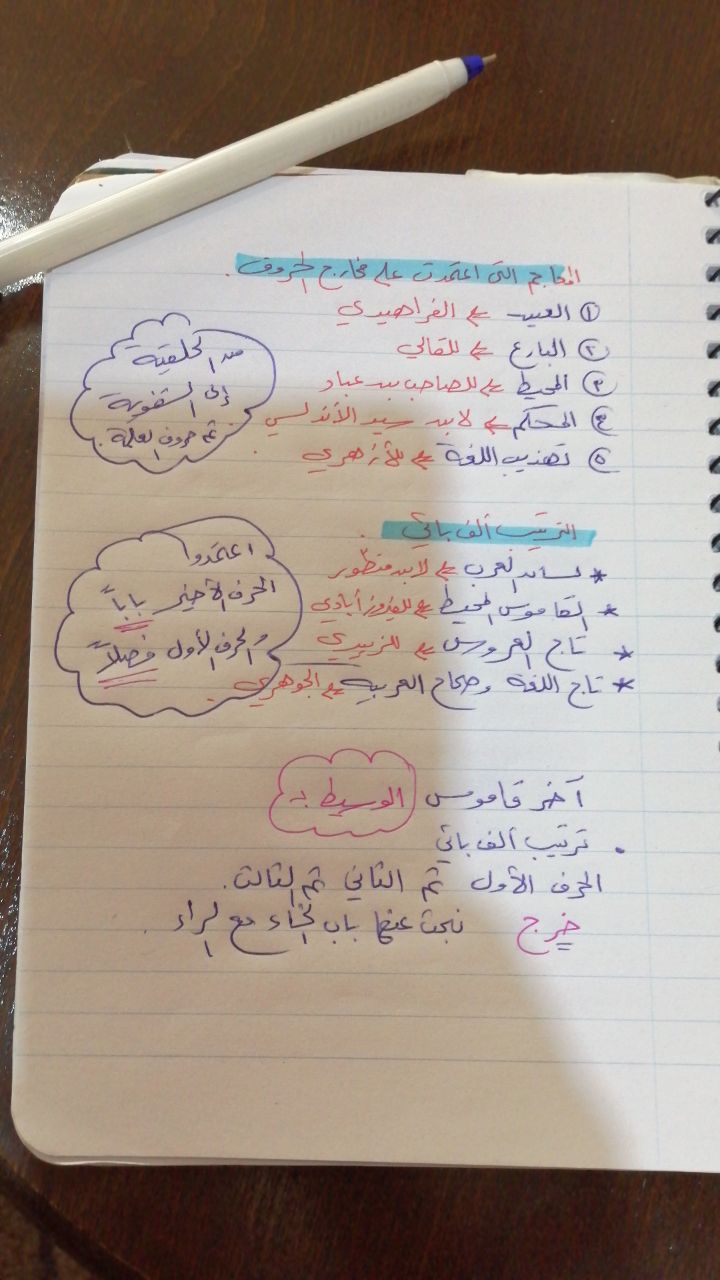 المعاجم التي اعتمدت على مخارج الحروف.
① العين ⇐ الفراهيدي
② البارع ⇐ للقالي
③ المحيط ⇐ للصاحب بن عباد
④ المحكم ⇐ لابن سيد الأندلسي
⑤ تهذيب اللغة ⇐ للأزهري.
من الحلقية
إلى الشفوية
ثم حروف العلة.
الترتيب ألف بائي.
* لسان العرب ⇐ لابن منظور
* القاموس المحيط ⇐ للفيروز أبادي
* تاج العروس ⇐ للزبيدي
* تاج اللغة وصحاح العربية ⇐ الجوهري.
اعتمدوا
الحرف الأخير باباً
والحرف الأول فصلاً
آخر قاموس الوسيط :-
. ترتيب ألف بائي
الحرف الأول ثم الثاني ثم الثالث.
خرج نبحث عنها باب الخاء مع الراء.